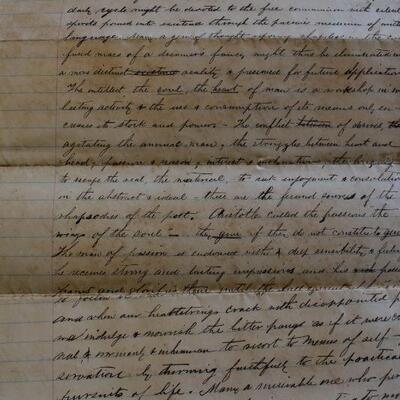 daily cycle might be devoted to the free communion with silent
spirits poured out
language. Many a gem of thought
fused mass of a dreamer's fancy, might thus be eliminated in
a more distinct reality, & preserved for future application
The intellect the soul, the heart of man is a workshop in ever
lasting activity & the use & consumption of its means only in
creases its stock and powers - The conflict of desires,
agitating the animal man; the struggles between heart and
head, passion & reason, interest & inclination, the longing
to escape the real, the material, to seek enjoyment & consolation
in the abstract & ideal - these are the fecund sources of the
rhapsodies of the poet. Aristotle called the passions the
wings of the soul - they give if they do not constitute
The man of passion is endowed with a deep sensibility &
he receives strong and lasting impressions and his
and when our heartstrings crack with disappointed
we indulge & nourish the bitter pangs as if it were
& unmanly & inhuman to resort to means of self
servation by turning faithfully to the practical
pursuits of life. Many a miserable one who